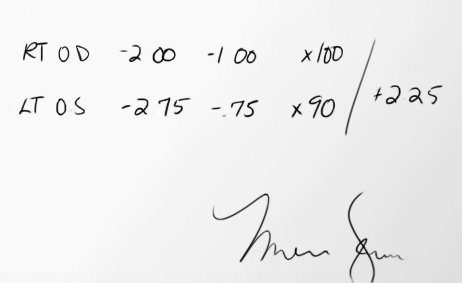 RT OD -2 00 -1 00 x100
LT OS -2 75 -.75 x90 / +2 25